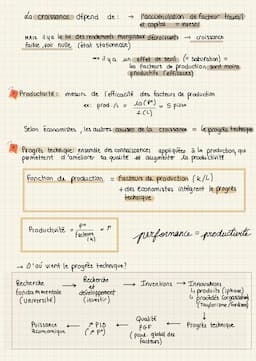 La croissance dépend de : → l'accumulation de facteur travail
et capital = invest
Mais il y a la loi des rendements marginaux décroissants → croissance
faible, voir nulle (état stationnaire)
→ il y a un effet de seuil (= saturation) =
les facteurs de production sont moins
productifs (efficaces)
Productivité : mesure de l'efficacité des facteurs de production
ex : prod A = = 5 pizza
Selon économistes, les autres causes de la croissance = le progrès technique
Progrès technique : ensemble des connaissances appliquées à la production, qui
permettent d'améliorer la qualité et augmenter la productivité
Fonction de production = facteurs de production (K/L)
+ des économistes intègrent le progrès
technique
Productivité =
facteurs
performance = productivité
→ D'où vient le progrès technique ?
Recherche
fondamentale
(université)
→ Recherche
et
développement
(investir)
→ Inventions → Innovations
↳ produits (iphone)
↳ procédés (organisation)
(Taylorisme/Fordisme)
Puissance
économique
← ↗ PIB
← Qualité
PGF
(prod. global des
facteurs)
← Progrès technique